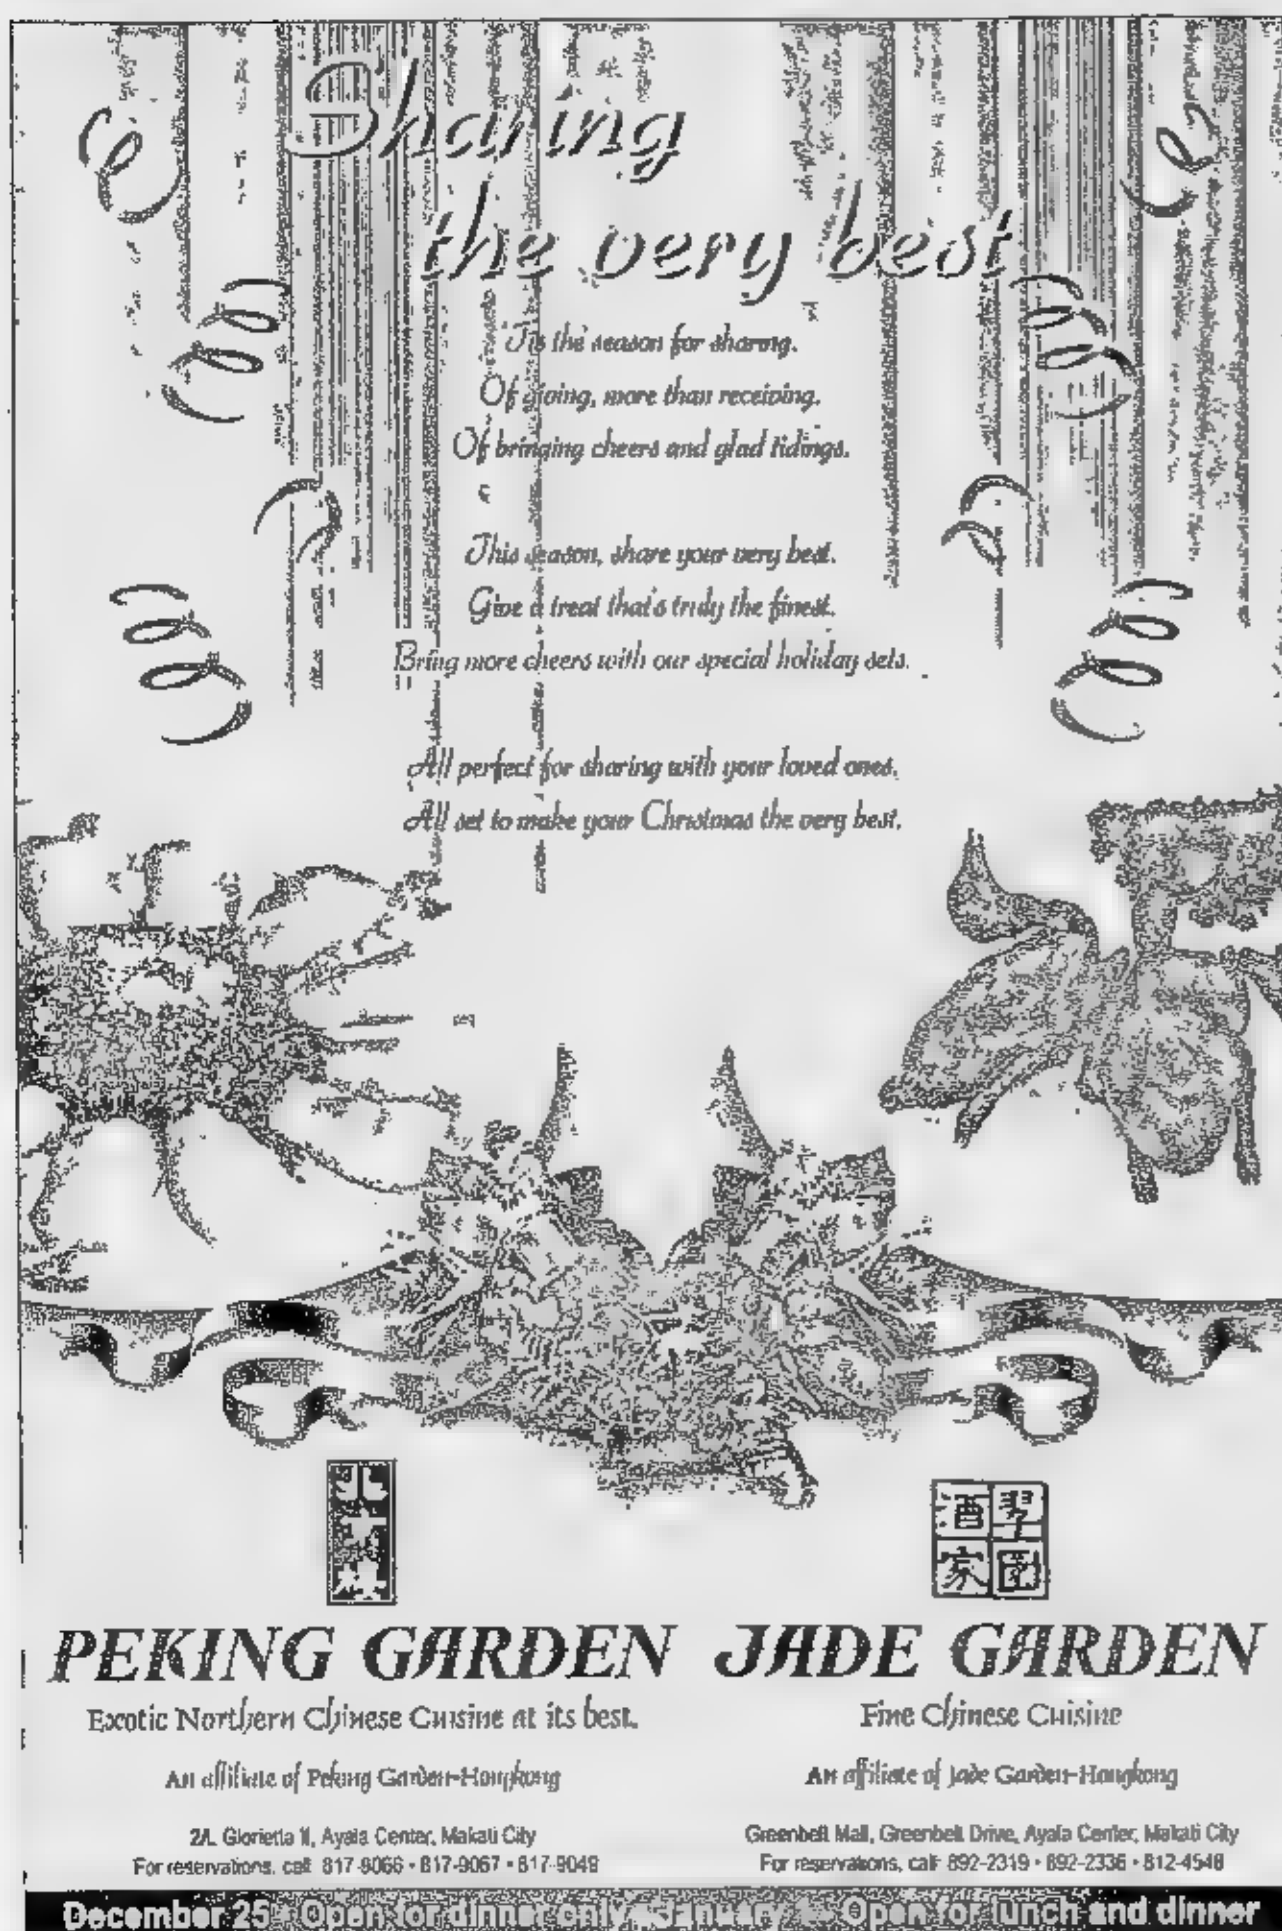 Sharing
the very best
'Tis the season for sharing.
Of giving, more than receiving.
Of bringing cheers and glad tidings.
This season, share your very best.
Give a treat that's truly the finest.
Bring more cheers with our special holiday sets.
All perfect for sharing with your loved ones.
All set to make your Christmas the very best.
北
翠園
酒家
PEKING GARDEN
Exotic Northern Chinese Cuisine at its best.
An affiliate of Peking Garden-Hongkong
Glorietta II, Ayala Center, Makati City
For reservations, call 817-9066 • 817-9067 • 817-9049
JADE GARDEN
Fine Chinese Cuisine
An affiliate of Jade Garden-Hongkong
Greenbelt Mall, Greenbelt Drive, Ayala Center, Makati City
For reservations, call 892-2319 • 892-2336 • 812-4548
December 25 • Open for dinner only • January • Open for lunch and dinner